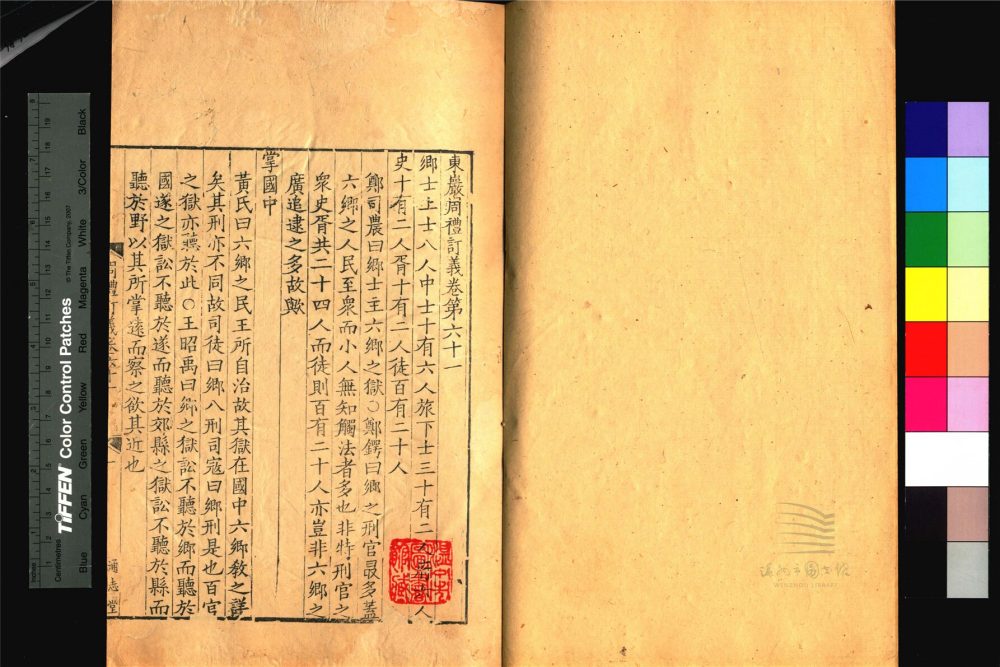 東巖周禮訂義卷第六十一
鄉士上士八人中士十有六人旅下士三十有二人府六人
史十有二人胥十有二人徒百有二十人
鄭司農曰鄉士主六鄉之獄○鄭鍔曰鄉之刑官最多蓋
六鄉之人民至衆而小人無知觸法者多也非特刑官之
衆史胥共二十四人而徒則百有二十人亦豈非六鄉之
廣追逮之多故歟
掌國中
黃氏曰六鄉之民王所自治故其獄在國中六鄉敎之詳
矣其刑亦不同故司徒曰鄉八刑司寇曰鄉刑是也百官
之獄亦聽於此○王昭禹曰鄉之獄訟不聽於鄉而聽於
國遂之獄訟不聽於遂而聽於郊縣之獄訟不聽於縣而
聽於野以其所掌遠而察之欲其近也
周禮訂義卷六十一
通志堂
WENZHOU LIBRARY
TIFFEN Color Control Patches
© The Tiffen Company, 2007
Inches
Centimetres
Blue
Cyan
Green
Yellow
Red
Magenta
White
3/Color
Black